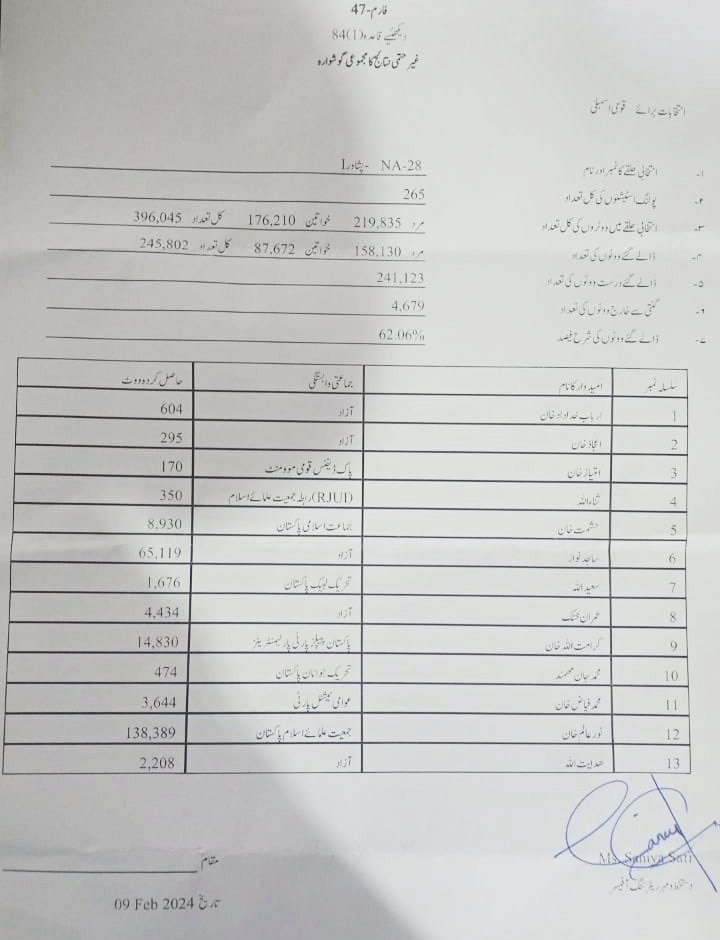 فارم-47
دیکھئیے قاعدہ (1)84
غیر حتمی نتائج کا مجموعی گوشوارہ
انتخابات برائے قومی اسمبلی
۱- انتخابی حلقے کا نمبر اور نام NA-28 - پشاور-I
۲- پولنگ اسٹیشنوں کی کل تعداد 265
۳- انتخابی حلقے میں ووٹروں کی کل تعداد مرد 219,835 خواتین 176,210 کل تعداد 396,045
۴- ڈالے گئے ووٹوں کی تعداد مرد 158,130 خواتین 87,672 کل تعداد 245,802
۵- ڈالے گئے درست ووٹوں کی تعداد 241,123
۶- گنتی سے خارج ووٹوں کی تعداد 4,679
۷- ڈالے گئے ووٹوں کی شرح فیصد 62.06%
سلسلہ نمبر امیدوار کا نام جماعتی وابستگی حاصل کردہ ووٹ
1 ارباب خداداد خان آزاد 604
2 اعجاز خان آزاد 295
3 امتیاز خان پاک ڈیفنس قومی موومنٹ 170
4 ثناءاللہ رابطہ جمعیت علمائے اسلام (RJUI) 350
5 حشمت خان جماعت اسلامی پاکستان 8,930
6 ساجد نواز آزاد 65,119
7 سعید اللہ تحریک لبیک پاکستان 1,676
8 عمران خٹک آزاد 4,434
9 کرامت اللہ خان پاکستان پیپلز پارٹی پارلیمنٹیرینز 14,830
10 محمد جان مھمند تحریک جوانان پاکستان 474
11 محمد فیاض خان عوامی نیشنل پارٹی 3,644
12 نور عالم خان جمعیت علمائے اسلام پاکستان 138,389
13 ھدایت اللہ آزاد 2,208
Ms. Saniya Safi
مقام
دستخط و مہر ریٹرننگ آفیسر
تاریخ 09 Feb 2024